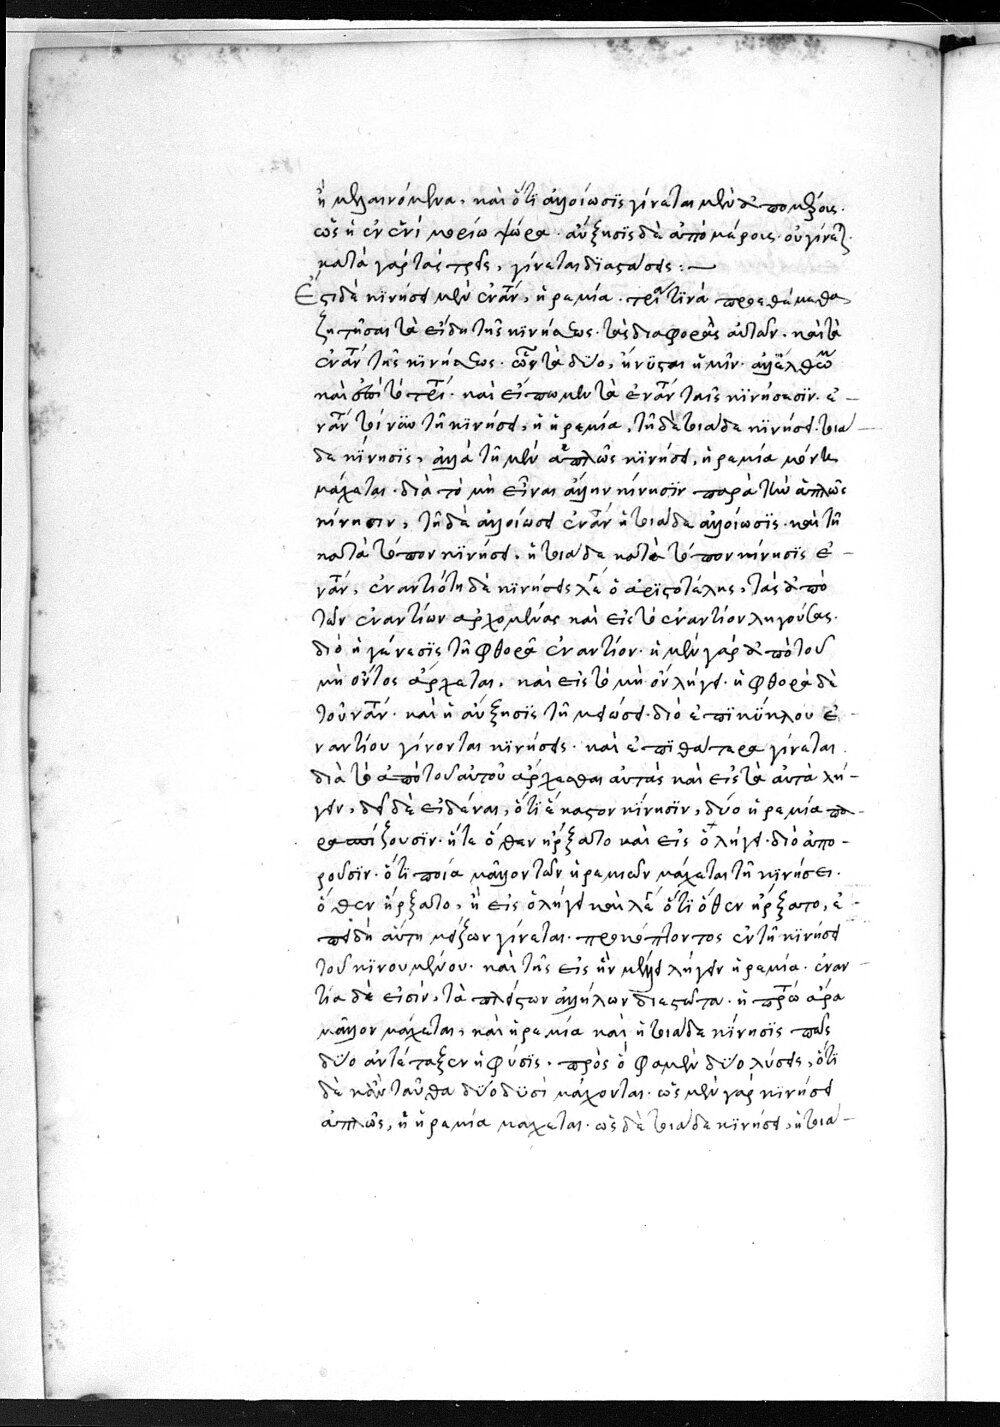 ἢ μελαινόμενα. καὶ ὅτι ἀλλοίωσις γίνεται μὲν ἀπο μέξεις.
ὡς ἡ ἐν ἑνὶ μορίω ψώρα. αὔξησις δὲ ἀπὸ μέρους οὐ γίνεται.
κατὰ γὰρ τὰς τρεῖς, γίνεται διαστάσεις :—
Ἔστι δὲ κινήσει μὲν ἐναντ, ἠρεμία. τρί τινὰ προεθέμεθα
ζητῆσαι τὰ εἴδη τῆς κινήσεως. τὰς διαφορὰς αὐτῶν. καὶ τὰ
ἐναντ τῆς κινήσεως. ὧν τὰ δύο, ἤνυσται ἡμῖν.
καὶ ἐπὶ τὸ τρί. καὶ εἴπωμεν τὰ ἐναντ ταῖς κινήσεσιν. ἐ-
ναντ τοίνυν τῆ κινήσει, ἡ ἠρεμία, τῆ δὲ τοιᾶδε κινήσει. τοιά-
δε κίνησις, ἀλλὰ τῆ μὲν ἁπλῶς κινήσει, ἠρεμία μόνη
μάχεται. διὰ τὸ μὴ εἶναι ἄλλην κίνησιν παρὰ τὴν ἁπλῶς
κίνησιν, τῆ δὲ ἀλλοιώσει ἐναντ ἡ τοιάδε ἀλλοίωσις. καὶ τῆ
κατὰ τόπον κινήσει, ἡ τοιάδε κατὰ τόπον κίνησις ἐ-
ναντ, ἐναντιότη δὲ κινήσεις λέ ὁ ἀριστοτέλης, τὰς ἀπὸ
τῶν ἐναντίων ἀρχομένας καὶ εἰς τὸ ἐναντίον ληγούσας.
διὸ ἡ γένεσις τῆ φθορᾶ ἐναντίον. ἡ μὲν γὰρ ἀπὸ τοῦ
μὴ ὄντος ἄρχεται, καὶ εἰς τὸ μὴ ὂν λήγει. ἡ φθορὰ δὲ
τοὐναντ. καὶ ἡ αὔξησις τῆ μειώσει. διὸ ἐπὶ κύκλου ἐ-
ναντίου γίνονται κινήσεις. καὶ ἐπὶ θάτερα γίνεται
διὰ τὸ ἀπὸ τοῦ αὐτοῦ ἄρχεσθαι αὐτὰς καὶ εἰς τὰ αὐτὰ λή-
γειν, δεῖ δὲ εἰδέναι, ὅτι ἑκάστον κίνησιν, δύο ἠρεμία πε-
ρατίζουσιν. ἥτε ὅθεν ἤρξατο καὶ εἰς ὃ λήγει. διὸ ἀπο-
ροῦσιν. ὅτι ποία μᾶλλον τῶν ἠρεμιῶν μάχεται τῆ κινήσει.
ὅθεν ἤρξατο, ἢ εἰς ὃ λήγει καὶ λέ ὅτι ὅθεν ἤρξατο, ἐ-
πειδὴ αὕτη μείζων γίνεται. προκόπτοντος ἐν τῆ κινήσει
τοῦ κινουμένου. καὶ τῆς εἰς ἣν μέλλει λήγειν ἠρεμία. ἐναν-
τία δὲ εἰσίν, τὰ πλεῖστον ἀλλήλων διεστῶτα. ἡ πρώ ἄρα
μᾶλλον μάχεται, καὶ ἠρεμία καὶ ἡ τοιάδε κίνησις πῶς
δύο ἀντέταξεν ἡ φύσις. πρὸς ὃ φαμὲν δύο λύσεις, ὅτι
δὲ κἀνταῦθα δύο δυσὶ μάχονται. ὡς μὲν γὰρ κινήσει
ἁπλῶς, ἡ ἠρεμία μάχεται. ὡς δὲ τοιᾶδε κινήσει, ἡ τοιά-